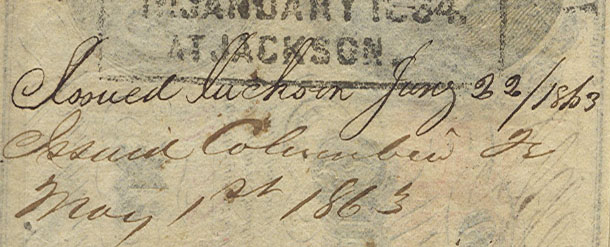 JANUARY 1864.
AT JACKSON.
Issued Jackson Jany 22/1863
Issued Columbia
May 1st 1863